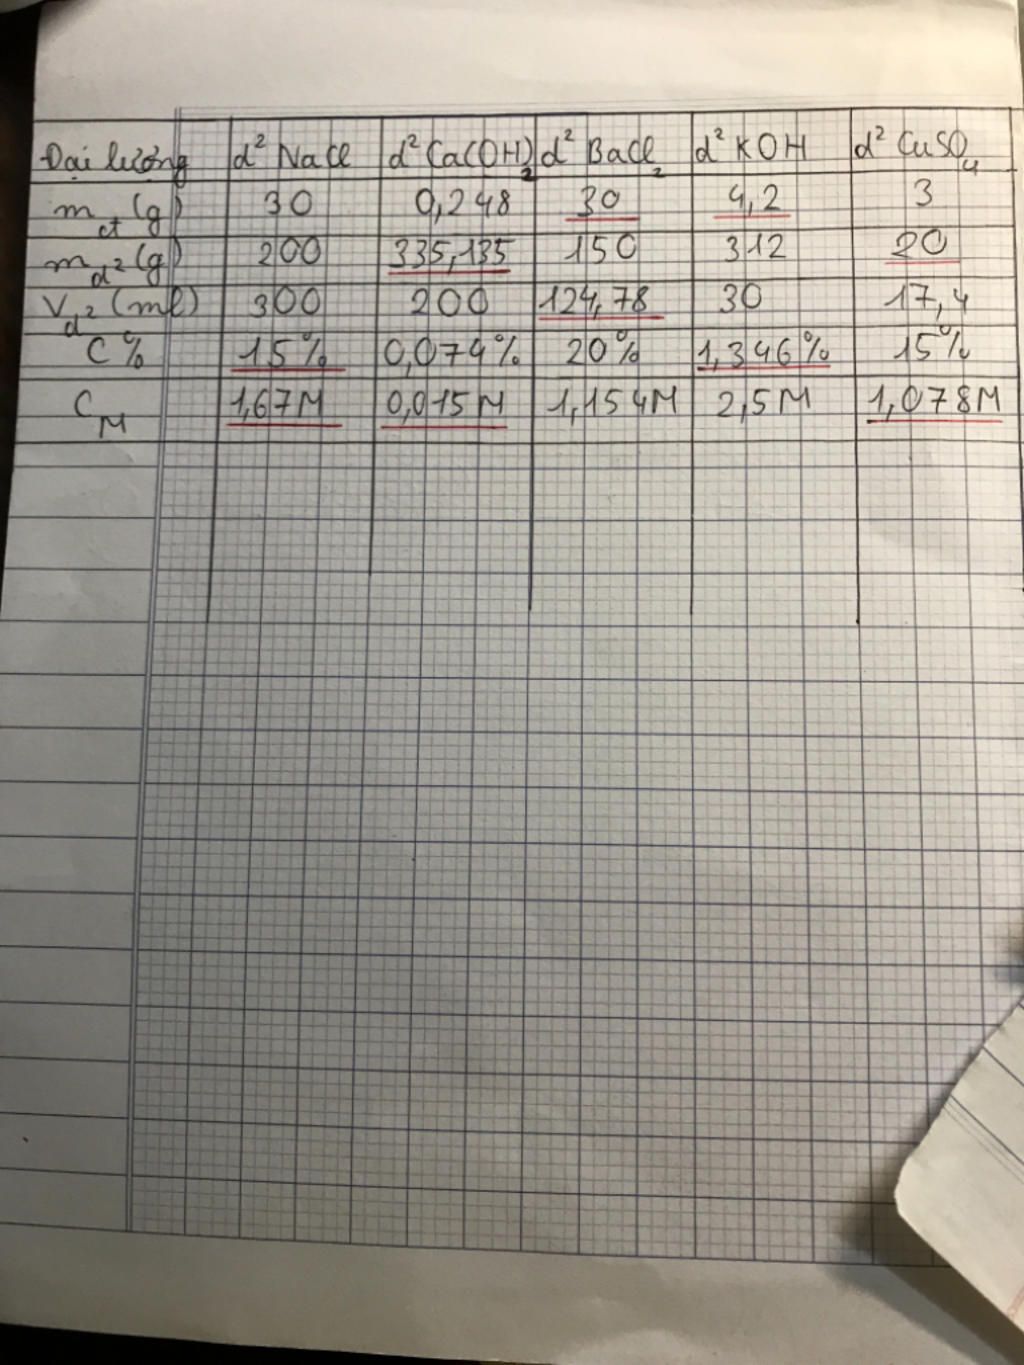 Đại lượng d² NaCl d² Ca(OH)₂ d² BaCl₂ d² KOH d² CuSO₄
m_ct (g) 30 0,248 30 4,2 3
m_d² (g) 200 335,135 150 312 20
V_d² (ml) 300 200 124,78 30 17,4
C% 15% 0,074% 20% 1,346% 15%
C_M 1,67M 0,015M 1,154M 2,5M 1,078M